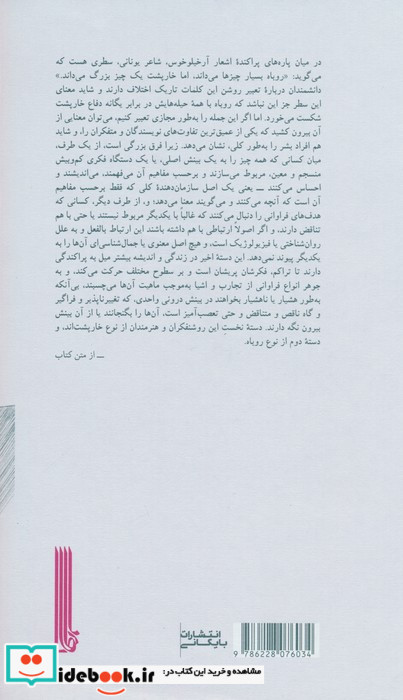 در میان پاره‌های پراکندهٔ اشعار آرخیلوخوس، شاعر یونانی، سطری هست که
می‌گوید: «روباه بسیار چیزها می‌داند، اما خارپشت یک چیز بزرگ می‌داند.»
دانشمندان دربارهٔ تعبیر روشن این کلمات تاریک اختلاف دارند و شاید معنای
این سطر جز این نباشد که روباه با همهٔ حیله‌هایش در برابر یگانه دفاع خارپشت
شکست می‌خورد. اما اگر این جمله را به‌طور مجازی تعبیر کنیم، می‌توان معنایی از
آن بیرون کشید که یکی از عمیق‌ترین تفاوت‌های نویسندگان و متفکران را، و شاید
هم افراد بشر را به‌طور کلی، نشان می‌دهد. زیرا فرق بزرگی است، از یک طرف،
میان کسانی که همه چیز را به یک بینش اصلی، یا یک دستگاه فکری کم‌وبیش
منسجم و معین، مربوط می‌سازند و برحسب مفاهیم آن می‌فهمند، می‌اندیشند و
احساس می‌کنند ـــ یعنی یک اصل سازمان‌دهندهٔ کلی که فقط برحسب مفاهیم
آن است که آنچه می‌کنند و می‌گویند معنا می‌دهد؛ و، از طرف دیگر، کسانی که
هدف‌های فراوانی را دنبال می‌کنند که غالباً با یکدیگر مربوط نیستند یا حتی با هم
تناقض دارند، و اگر اصولاً ارتباطی با هم داشته باشند این ارتباط بالفعل و به علل
روان‌شناختی یا فیزیولوژیک است، و هیچ اصل معنوی یا جمال‌شناسی‌ای آن‌ها را به
یکدیگر پیوند نمی‌دهد. این دستهٔ اخیر در زندگی و اندیشه بیشتر میل به پراکندگی
دارند تا تراکم، فکرشان پریشان است و بر سطوح مختلف حرکت می‌کند، و به
جوهر انواع فراوانی از تجارب و اشیا به‌موجب ماهیت آن‌ها می‌چسبند، بی‌آنکه
به‌طور هشیار یا ناهشیار بخواهند در بینش درونی واحدی، که تغییرناپذیر و فراگیر
و گاه ناقص و متناقض و حتی تعصب‌آمیز است، آن‌ها را بگنجانند یا از آن بینش
بیرون نگه دارند. دستهٔ نخستِ این روشنفکران و هنرمندان از نوع خارپشت‌اند، و
دستهٔ دوم از نوع روباه.
ـــ از متن کتاب
انتشارات
بایگانی
9 786228 076034
idebook.ir
مشاهده و خرید این کتاب در: